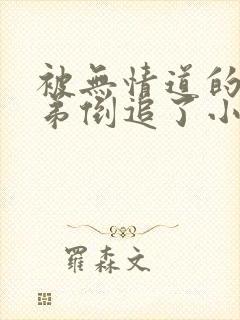 被無情道的
弟倒追了小
羅森文